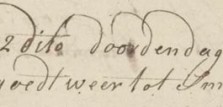 2 dito doordendag
goedt weer tot Sm